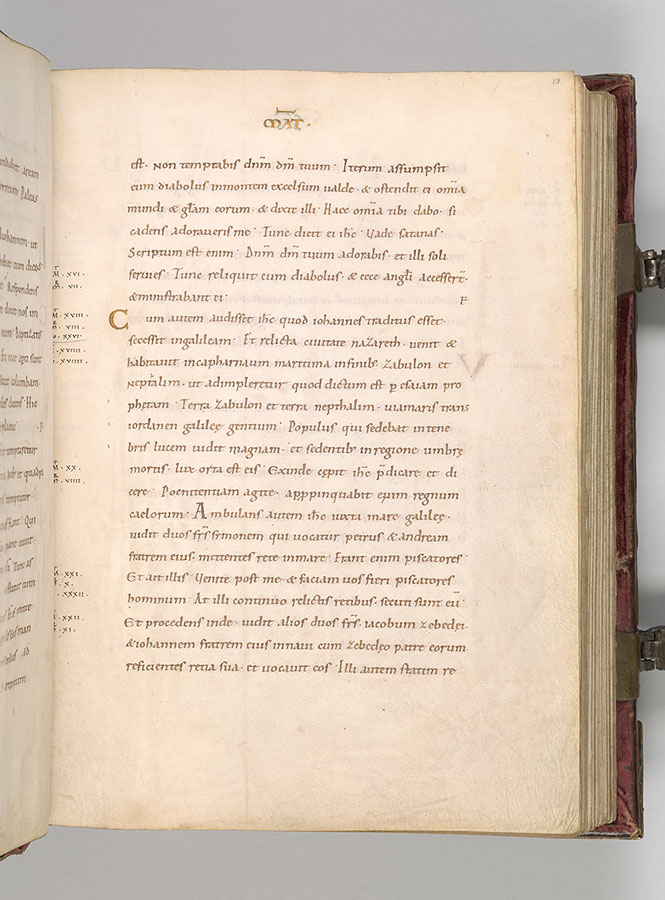 MAT̅·
est· Non temptabis dn̅m dm̅ tuum· Iterum assumpsit
eum diabolus inmontem excelsum ualde· & ostendit ei om̅ia
mundi & gl̅am eorum· & dixit illi· Haec om̅ia tibi dabo· si
cadens adoraueris me· Tunc dicit ei ih̅c· Uade satanas·
Scriptum est enim· Dn̅m dm̅ tuum adorabis· et illi soli
seruies· Tunc reliquit eum diabolus· & ecce angl̅i accesser̅t·
& ministrabant ei·
Cum autem audisset ih̅c quod iohannes traditus esset·
secessit ingalileam· Et relicta ciuitate nazareth· uenit &
habitauit incapharnaum maritima infinib; zabulon et
neptalim· ut adimpleretur quod dictum est p̅ esaiam pro
phetam· Terra zabulon et terra nepthalim· uiamaris trans
iordanen galileę gentium· Populus qui sedebat in tene
bris lucem uidit magnam· et sedentib; in regione umbrę
mortis· lux orta est eis· Exinde cępit ih̅c p̅dicare et di
cere· Poenitentiam agite· appropinquabit enim regnum
caelorum· Ambulans autem ih̅c iuxta mare galileę·
uidit duos fr̅s symonem qui uocatur petrus & andream
fratrem eius· mittentes rete inmare· Erant enim piscatores·
Et ait illis· Uenite post me· & faciam uos fieri piscatores
hominum· At illi continuo relictis retibus· secuti sunt eu̅·
Et procedens inde· uidit alios duos fr̅s· iacobum zebedęi·
& iohannem fratrem eius innaui cum zebedęo patre eorum
reficientes retia sua· et uocauit eos· Illi autem statim re
M·XVI·
VII·
M·XVIII·
VIII·
XXVI·
XVIIII·
M·XX·
VIII·
XXI·
X·
XXXII·
XI·